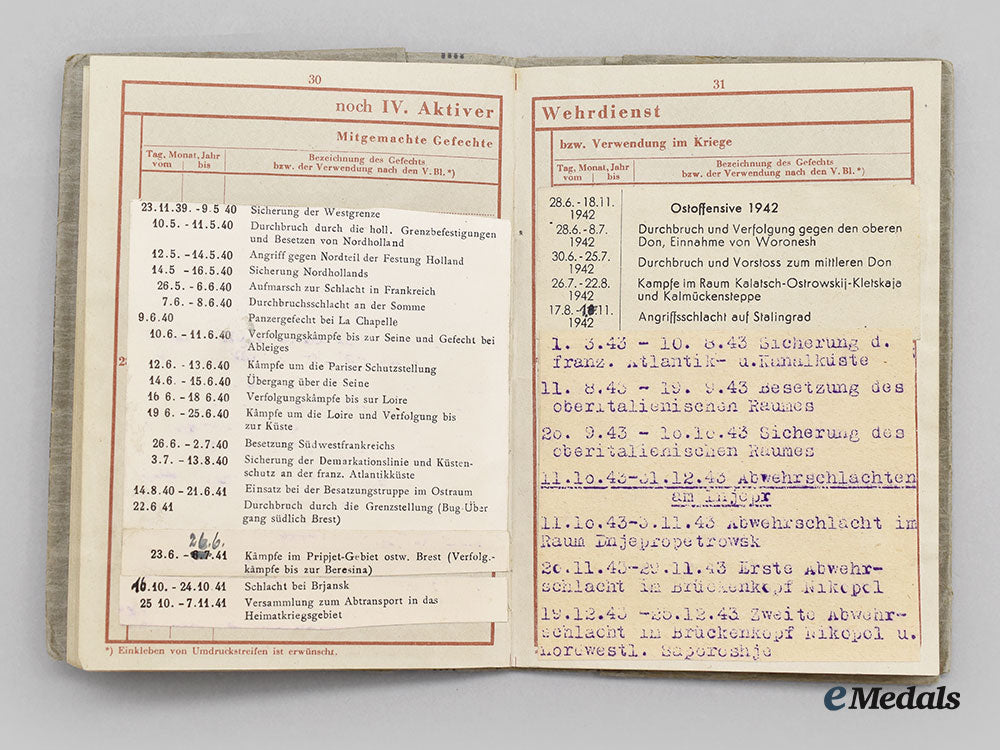 30
noch IV. Aktiver
Mitgemachte Gefechte
Tag, Monat, Jahr
vom bis
Bezeichnung des Gefechts
bzw. der Verwendung nach den V. Bl. *)
23.11.39. - 9.5 40 Sicherung der Westgrenze
10.5. - 11.5.40 Durchbruch durch die holl. Grenzbefestigungen
und Besetzen von Nordholland
12.5. - 14.5.40 Angriff gegen Nordteil der Festung Holland
14.5 - 16.5.40 Sicherung Nordhollands
26.5. - 6.6.40 Aufmarsch zur Schlacht in Frankreich
7.6. - 8.6.40 Durchbruchsschlacht an der Somme
9.6.40 Panzergefecht bei La Chapelle
10.6. - 11.6.40 Verfolgungskämpfe bis zur Seine und Gefecht bei
Ableiges
12.6. - 13.6.40 Kämpfe um die Pariser Schutzstellung
14.6. - 15.6.40 Übergang über die Seine
16 6. - 18 6.40 Verfolgungskämpfe bis sur Loire
19 6. - 25.6.40 Kämpfe um die Loire und Verfolgung bis
zur Küste
26.6. - 2.7.40 Besetzung Südwestfrankreichs
3.7. - 13.8.40 Sicherung der Demarkationslinie und Küsten-
schutz an der franz. Atlantikküste
14.8.40 - 21.6.41 Einsatz bei der Besatzungstruppe im Ostraum
22.6 41 Durchbruch durch die Grenzstellung (Bug-Über
gang südlich Brest)
26.6.
23.6. - 6.7.41 Kämpfe im Pripjet-Gebiet ostw. Brest (Verfolg.-
kämpfe bis zur Beresina)
16.10. - 24.10 41 Schlacht bei Brjansk
25 10. - 7.11.41 Versammlung zum Abtransport in das
Heimatkriegsgebiet
*) Einkleben von Umdruckstreifen ist erwünscht.
31
Wehrdienst
bzw. Verwendung im Kriege
Tag, Monat, Jahr
vom bis
Bezeichnung des Gefechts
bzw. der Verwendung nach den V. Bl. *)
28.6. - 18.11.
1942 Ostoffensive 1942
28.6. - 8.7.
1942 Durchbruch und Verfolgung gegen den oberen
Don, Einnahme von Woronesh
30.6. - 25.7.
1942 Durchbruch und Vorstoss zum mittleren Don
26.7. - 22.8.
1942 Kampfe im Raum Kalatsch-Ostrowskij-Kletskaja
und Kalmückensteppe
17.8. - 11.
1942 Angriffsschlacht auf Stalingrad
1. 3.43 - 10. 8.43 Sicherung d.
franz. Atlantik- u.Kanalküste
11. 8.43 - 19. 9.43 Besetzung des
oberitalienischen Raumes
20. 9.43 - 10.10.43 Sicherung des
oberitalienischen Raumes
11.10.43-31.12.43 Abwehrschlachten
am Dnjepr
11.10.43-5.11.43 Abwehrschlacht im
Raum Dnjepropetrowsk
20.11.43-29.11.43 Erste Abwehr-
schlacht im Brückenkopf Nikopol
19.12.43 -25.12.43 Zweite Abwehr-
schlacht im Brückenkopf Nikopol u.
nordwestl. Saporoshje
eMedals